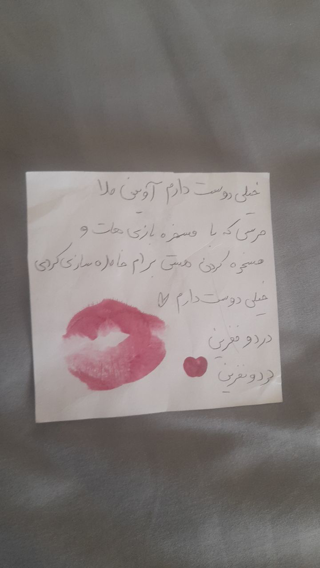 خیلی دوست دارم آوین ملا
مرسی که با مسخره بازی هات و
مسخره کردن هستی برام خاطره سازی کردی
خیلی دوست دارم
درد و نفرین
درد و نفرین